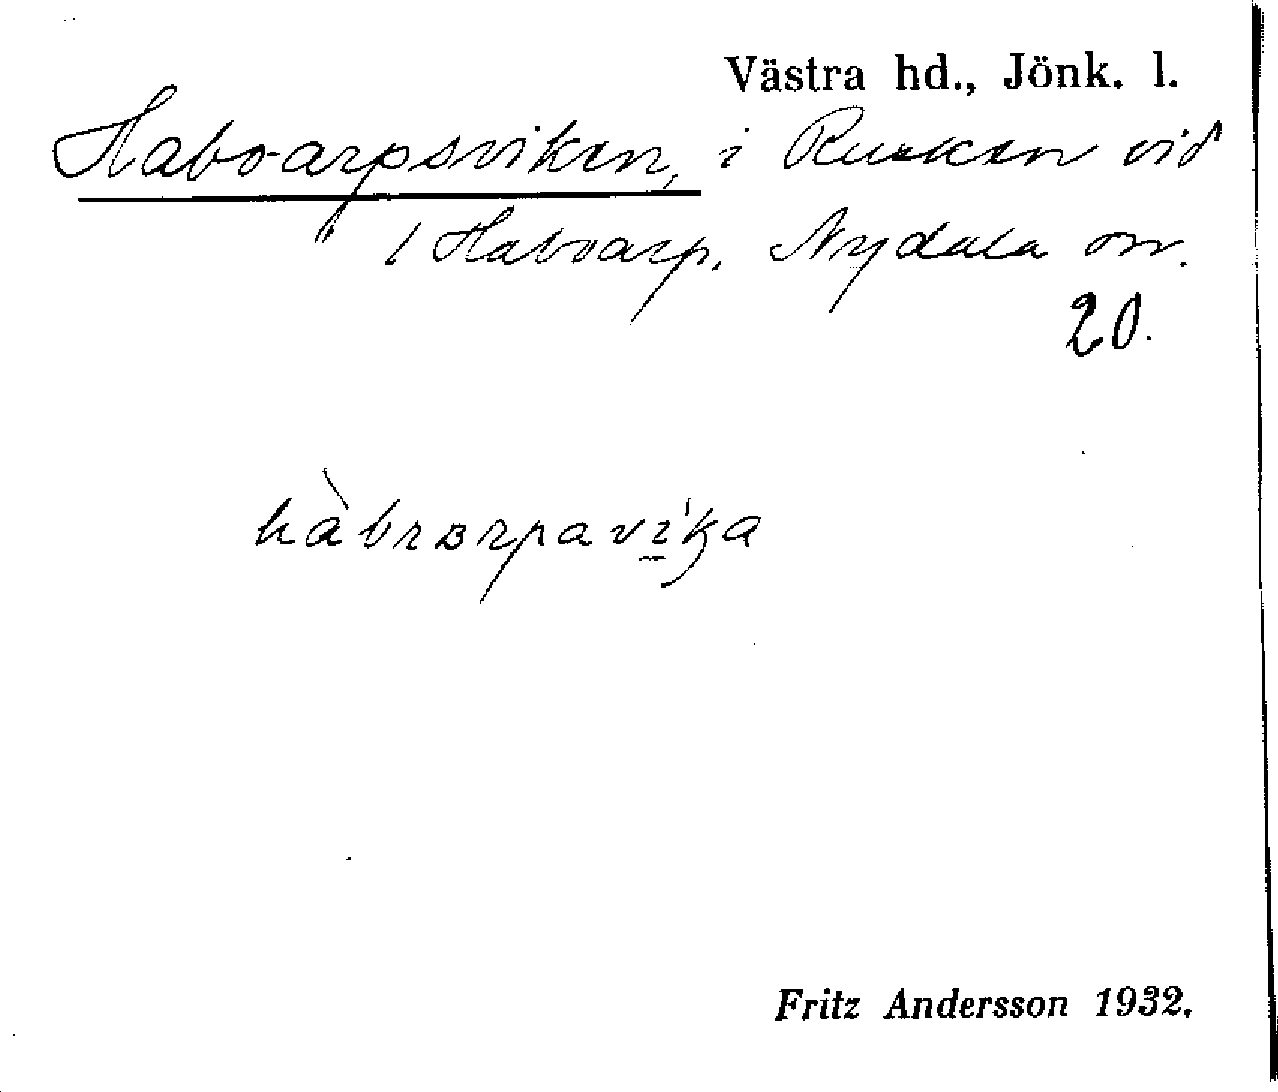 Västra hd., Jönk. l.
Haboarpsviken, i Rusken vid
/ Haboarp, Nydala sn.
20.
hàbrarpavika
Fritz Andersson 1932.